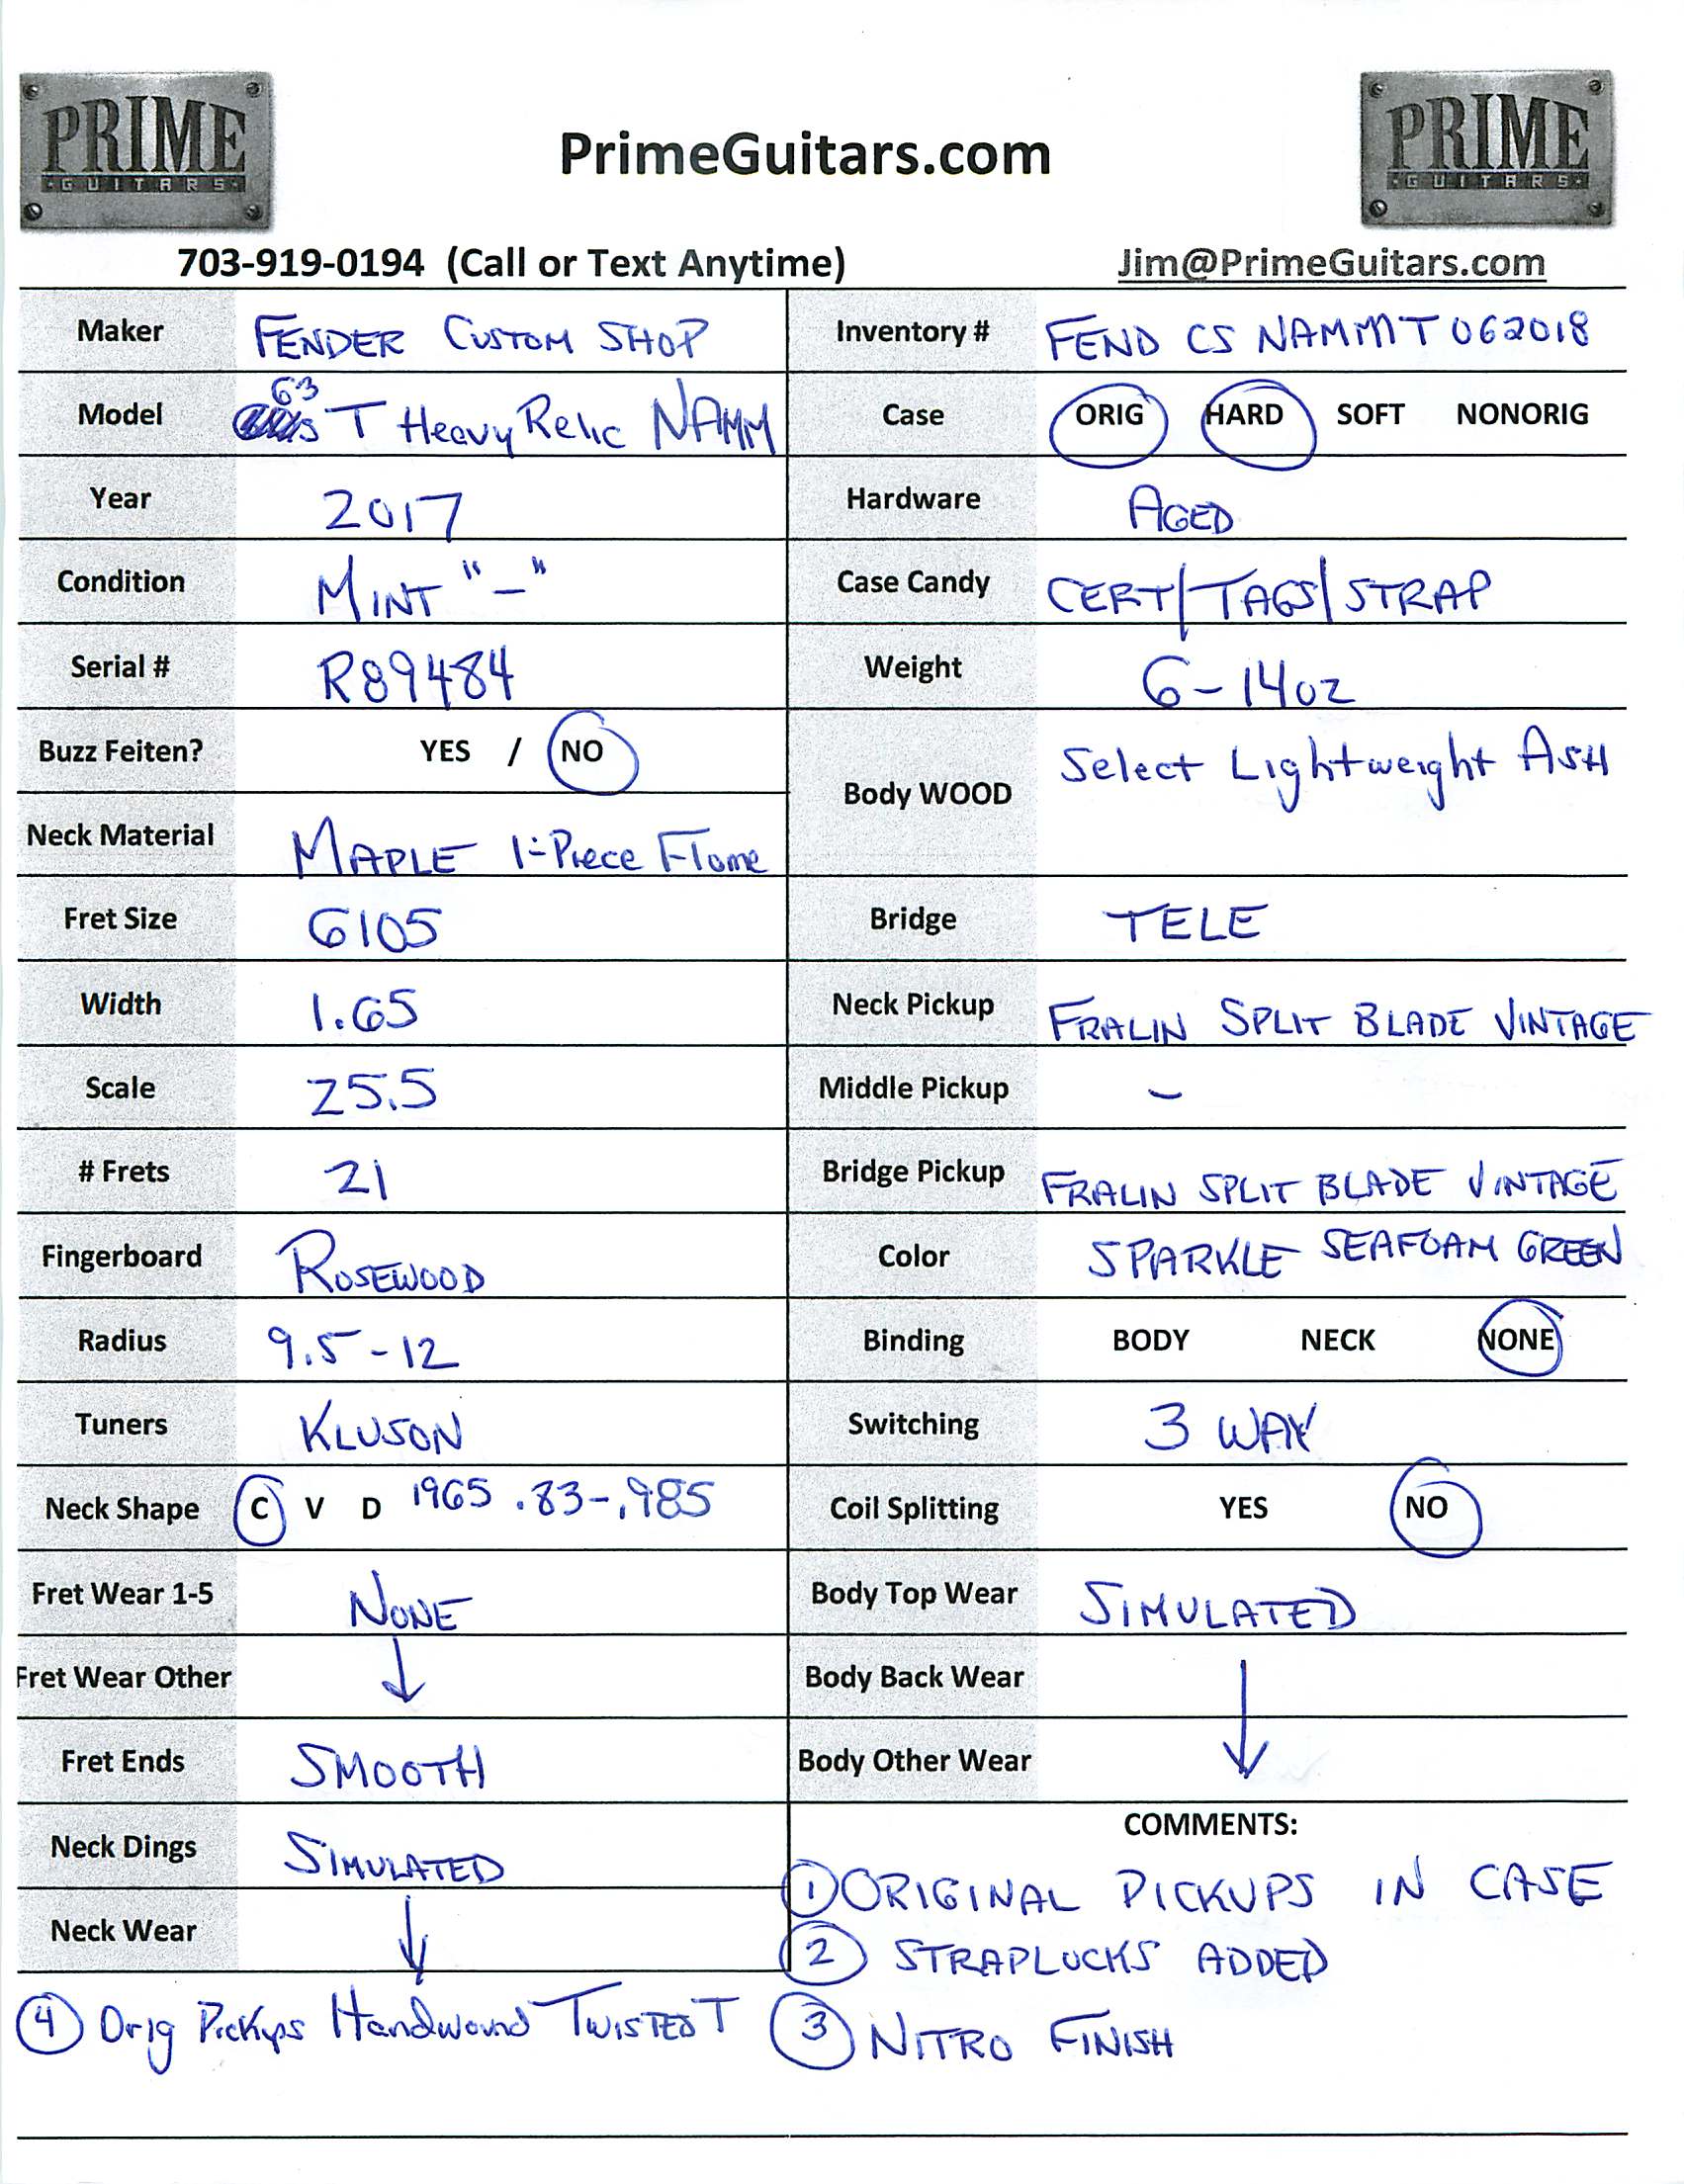 PRIME
GUITARS
PrimeGuitars.com
PRIME
GUITARS
703-919-0194 (Call or Text Anytime) Jim@PrimeGuitars.com
Maker FENDER CUSTOM SHOP Inventory # FEND CS NAMMT 062018
Model 63 T Heavy Relic NAMM Case ORIG HARD SOFT NONORIG
Year 2017 Hardware AGED
Condition MINT "-" Case Candy CERT/TAGS/STRAP
Serial # R89484 Weight 6-14oz
Buzz Feiten? YES / NO Body WOOD Select Lightweight ASH
Neck Material MAPLE 1-Piece Flame
Fret Size 6105 Bridge TELE
Width 1.65 Neck Pickup FRALIN SPLIT BLADE VINTAGE
Scale 25.5 Middle Pickup -
# Frets 21 Bridge Pickup FRALIN SPLIT BLADE VINTAGE
Fingerboard ROSEWOOD Color SPARKLE SEAFOAM GREEN
Radius 9.5-12 Binding BODY NECK NONE
Tuners KLUSON Switching 3 WAY
Neck Shape C V D 1965 .83-.985 Coil Splitting YES NO
Fret Wear 1-5 NONE Body Top Wear SIMULATED
Fret Wear Other ↓ Body Back Wear ↓
Fret Ends SMOOTH Body Other Wear
Neck Dings SIMULATED COMMENTS:
Neck Wear ↓ ① ORIGINAL PICKUPS IN CASE
② STRAPLOCKS ADDED
③ NITRO FINISH
④ Orig Pickups Handwound TWISTED T